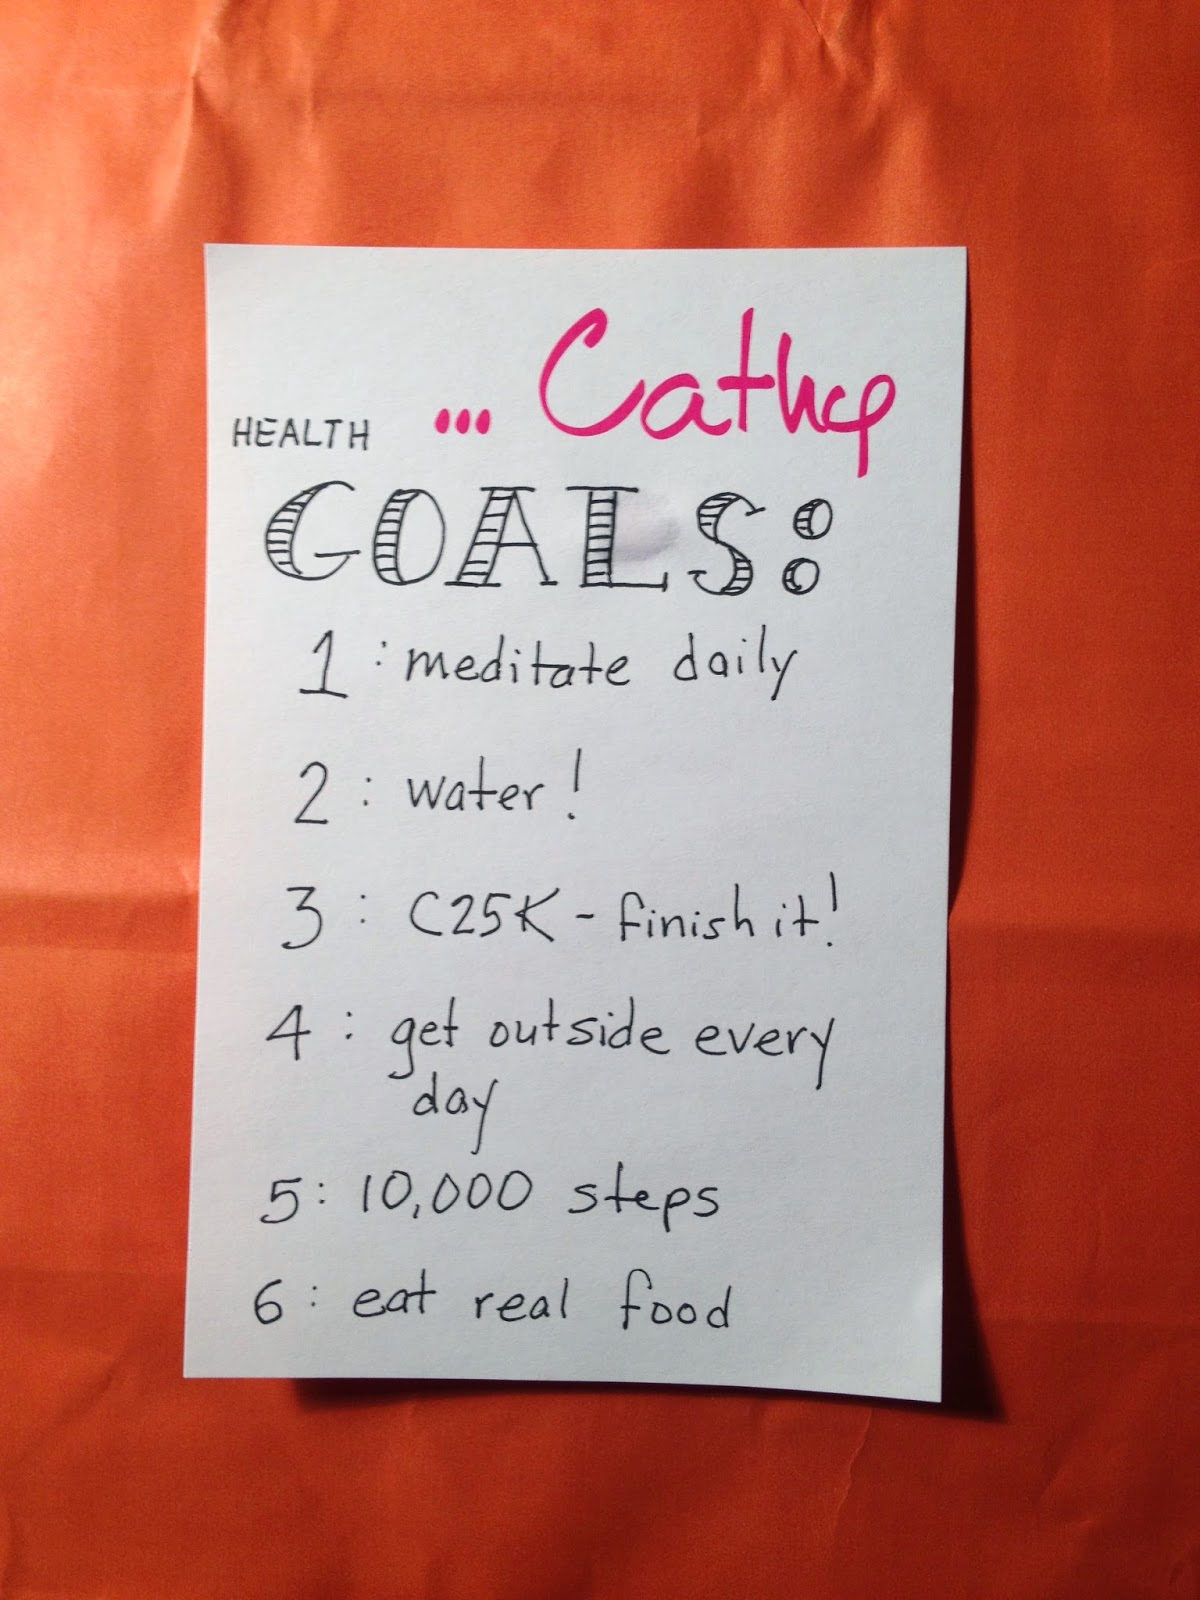 ... Cathy
HEALTH
GOALS:
1: meditate daily
2: water!
3: C25K - finish it!
4: get outside every
day
5: 10,000 steps
6: eat real food